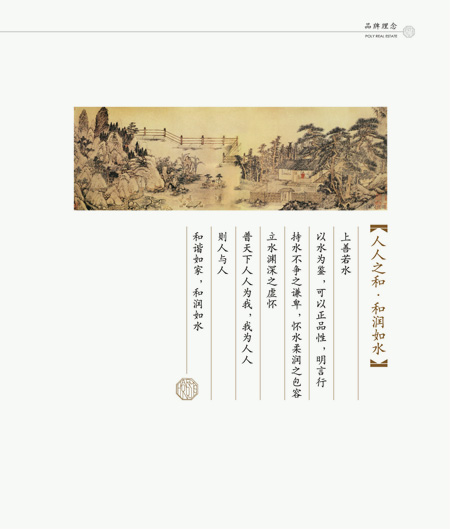 品牌理念
POLY REAL ESTATE
【人人之和·和润如水】
上善若水
以水为鉴，可以正品性，明言行
持水不争之谦卑，怀水柔润之包容
立水渊深之虚怀
普天下人人为我，我为人人
则人与人
和谐如家，和润如水